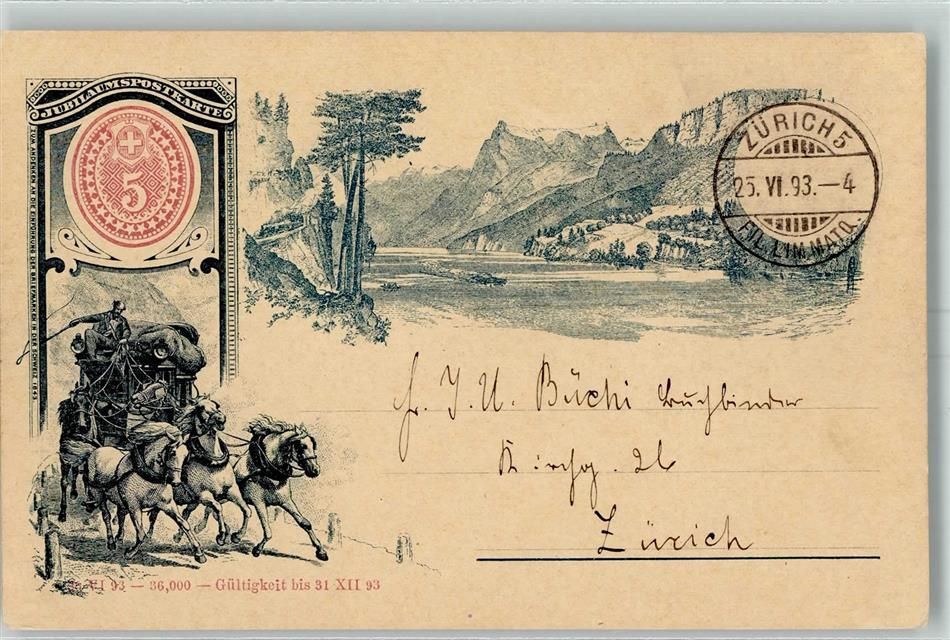 JUBILÄUMSPOSTKARTE
ZUM ANDENKEN AN DIE EINFÜHRUNG DER BRIEFMARKEN IN DER SCHWEIZ 1843
5
ZÜRICH 5
25. VI. 93. — 4
FIL. LIMMATQ.
J. U. Büchi Buchbinder
Kirchg.
Zürich
VI 93 — 36,000 — Gültigkeit bis 31 XII 93